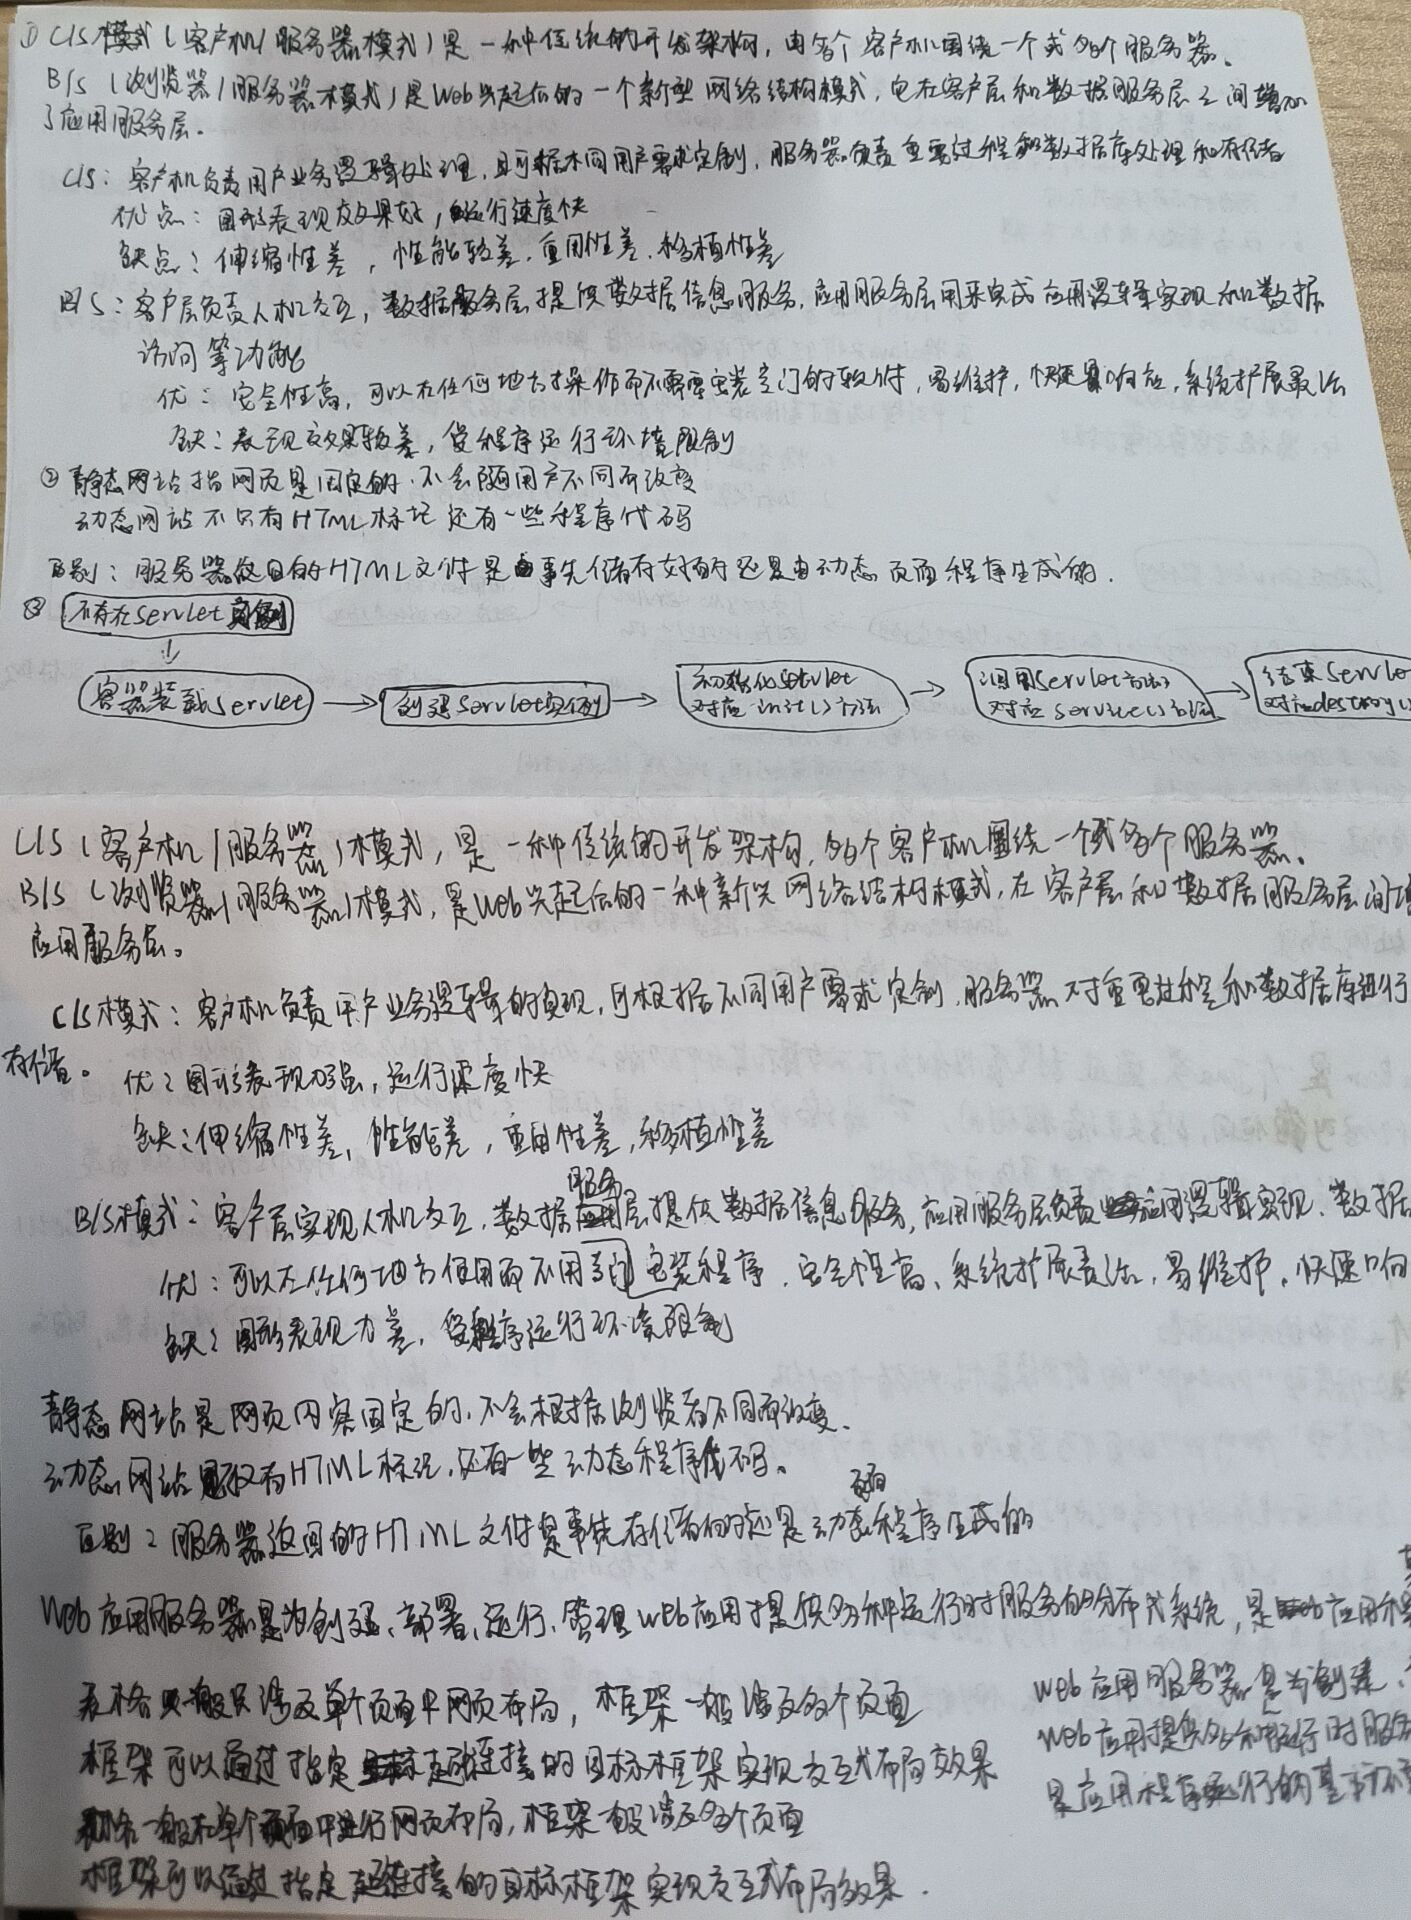 ① C/S模式(客户机/服务器模式)是一种传统的开发架构,由多个客户机围绕一个或多个服务器。
B/S(浏览器/服务器模式)是Web兴起后的一个新型网络结构模式,它在客户层和数据服务层之间增加
了应用服务层。
C/S:客户机负责用户业务逻辑处理,且可据不同用户需求定制,服务器负责重要过程和数据库处理和存储
优点:图形表现效果好,运行速度快
缺点:伸缩性差,性能较差,重用性差,移植性差
B/S:客户层负责人机交互,数据服务层提供数据信息服务,应用服务层用来完成应用逻辑实现和数据
访问等功能
优:安全性高,可以在任何地方操作而不需要安装专门的软件,易维护,快速响应,系统扩展灵活
缺:表现效果较差,受程序运行环境限制
② 静态网站指网页是固定的,不会随用户不同而改变
动态网站不只有HTML标记还有一些程序代码
区别:服务器返回的HTML文件是事先储存好的还是由动态页面程序生成的.
③ 不存在Servlet实例
↓
容器装载Servlet → 创建Servlet实例 → 初始化Servlet 对应init()方法 → 调用Servlet方法 对应service()方法 → 结束Servle 对应destroy(
C/S(客户机/服务器)模式,是一种传统的开发架构,多个客户机围绕一个或多个服务器、
B/S(浏览器/服务器)模式,是Web兴起后的一种新兴网络结构模式,在客户层和数据服务层间增
应用服务层。
C/S模式:客户机负责用户业务逻辑的实现,可根据不同用户需求定制,服务器对重要过程和数据库进行
存储。
优:图形表现力强,运行速度快
缺:伸缩性差、性能差,重用性差,移植性差
B/S模式:客户层实现人机交互,数据服务层提供数据信息服务,应用服务层负责应用逻辑实现、数据
优:可以在任何地方使用而不用专门安装程序,安全性高、系统扩展灵活,易维护,快速响
缺:图形表现力差,受程序运行环境限制
静态网站是网页内容固定的,不会根据浏览者不同而改变.
动态网站不仅有HTML标记,还有一些动态程序代码。
区别:服务器返回的HTML文件是事先存储的还是动态页面程序生成的
Web应用服务器是为创建、部署、运行、管理web应用提供多种运行时服务的分布式系统,是应用程
表格一般只涉及单个页面中网页布局,框架一般涉及多个页面
框架可以通过指定超链接的目标框架实现交互式布局效果
表格一般在单个页面中进行网页布局,框架一般涉及多个页面
框架可以通过指定超链接的目标框架实现交互式布局效果.
web应用服务器是为创建、
web应用提供多种运行时服务
是应用程序运行的基